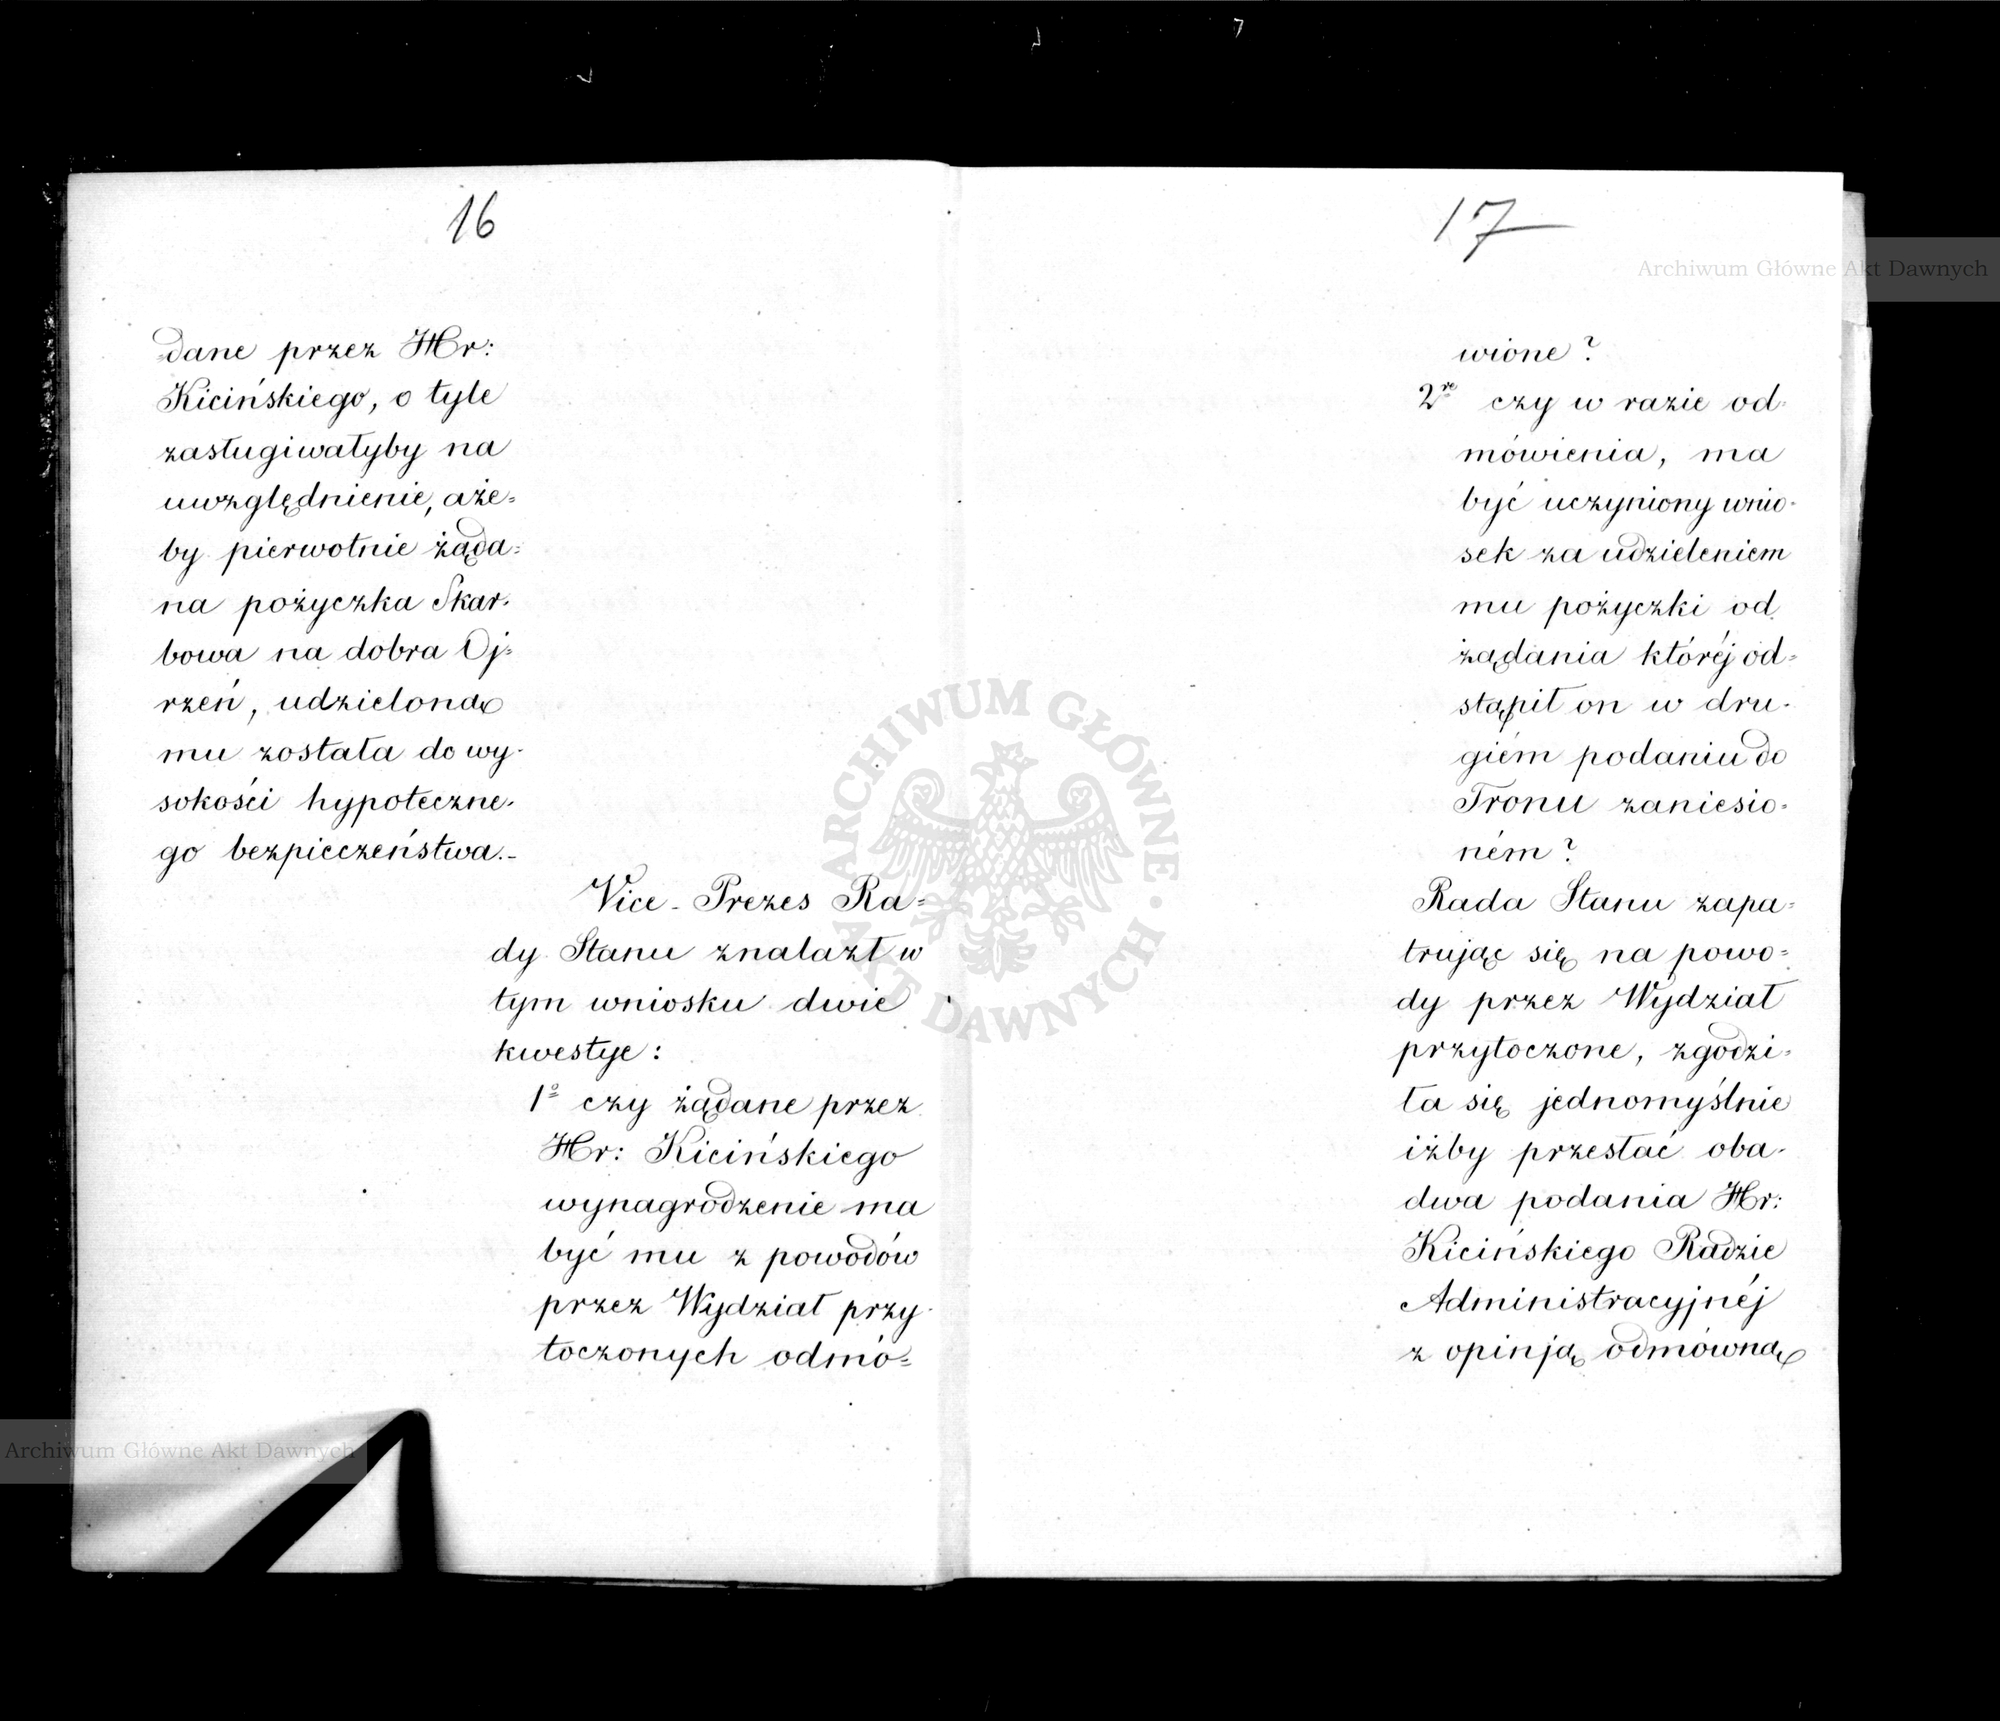 16
dane przez Hr:
Kicińskiego, o tyle
zasługiwałyby na
uwzględnienie, aże=
by pierwotnie żąda=
na pożyczka Skar-
bowa na dobra Oj=
rzeń, udzieloną
mu została do wy-
sokości hypoteczne-
go bezpieczeństwa.-
Vice-Prezes Ra=
dy Stanu znalazł w
tym wniosku dwie
kwestye:
1º czy żądane przez
Hr: Kicińskiego
wynagrodzenie ma
być mu z powodów
przez Wydział przy-
toczonych odmó=
17
wione?
2re czy w razie od-
mówienia, ma
być uczyniony wnio-
sek za udzieleniem
mu pożyczki od
żądania któréj od=
stąpił on w dru-
giém podaniu do
Tronu zaniesio-
ném?
Rada Stanu zapa=
trując się na powo=
dy przez Wydział
przytoczone, zgodzi=
ła się jednomyślnie
iżby przesłać oba-
dwa podania Hr:
Kicińskiego Radzie
Administracyjnéj
z opinją odmówną
Archiwum Główne Akt Dawnych
ARCHIWUM GŁÓWNE AKT DAWNYCH
Archiwum Główne Akt Dawnych